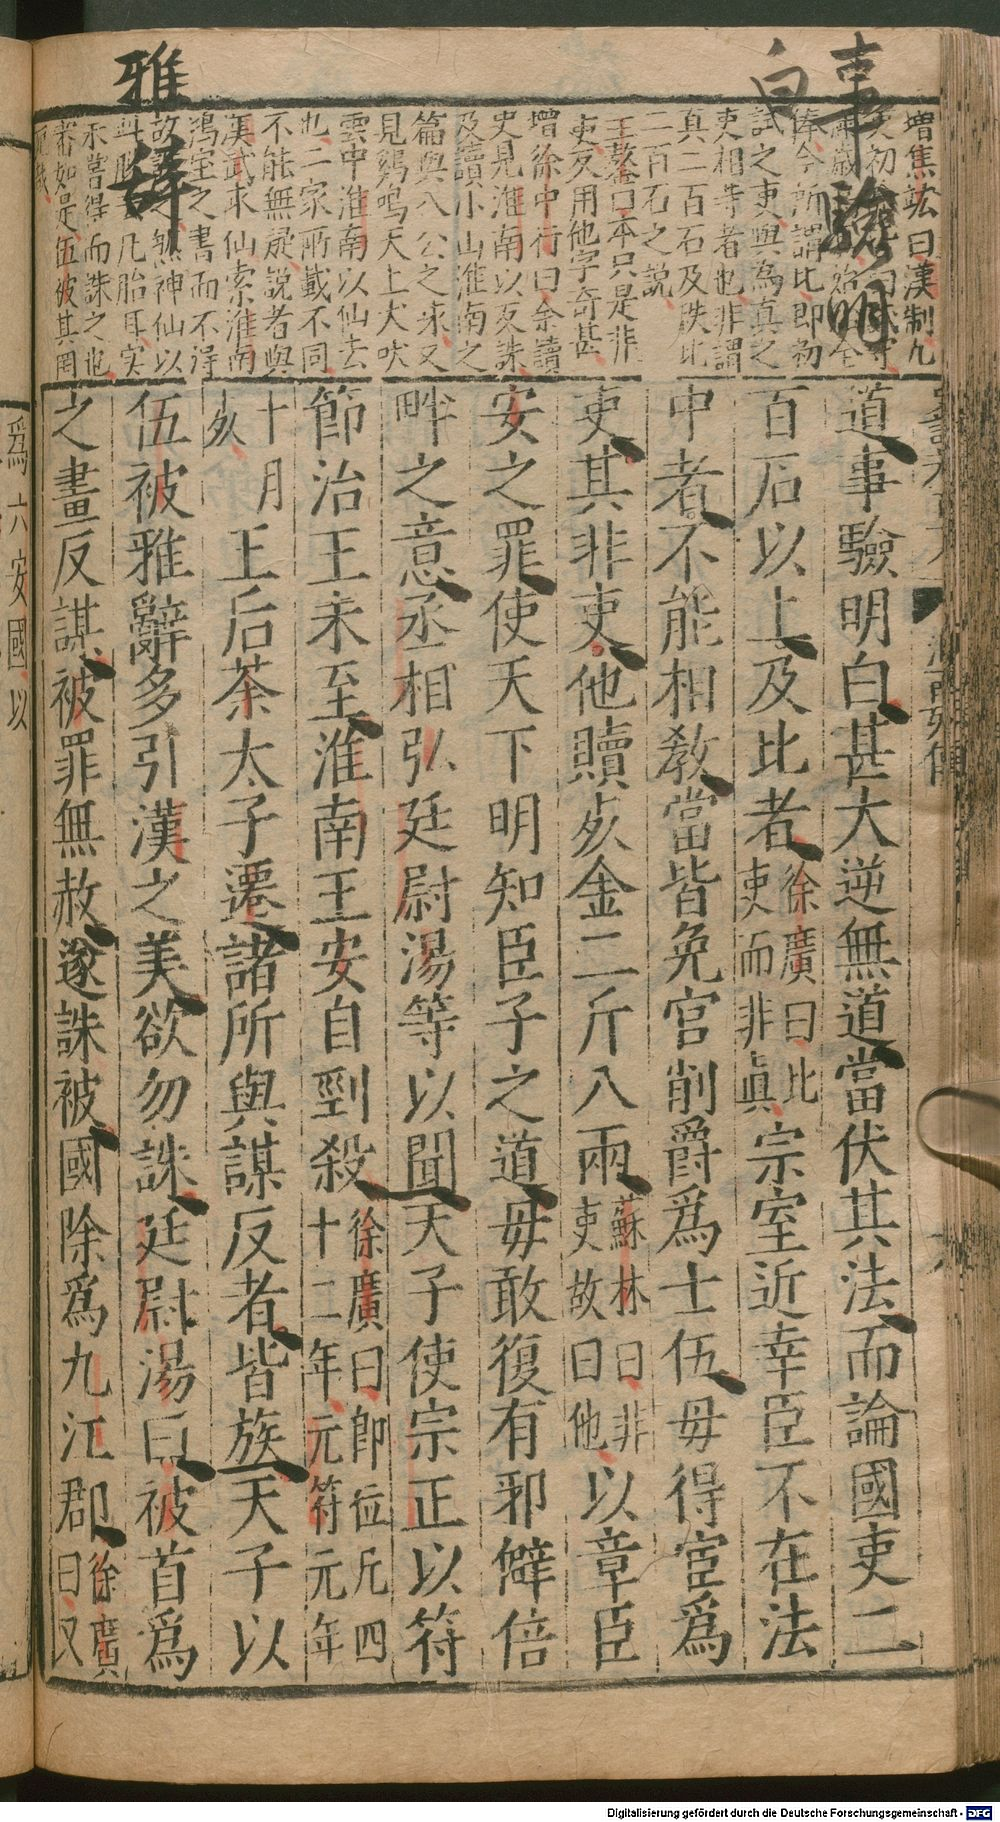 事驗明白
雅辭
增焦竑曰漢制九
俸今所謂比即初
試之吏與為真之
吏相等者也非謂
真二百石及秩比
二百石之說
王鏊曰本只是非
吏反用他字奇甚
增徐中行曰余讀
史見淮南以反誅
及讀小山淮南之
篇與八公之求又
見鷄鳴天上犬吠
雲中淮南以仙去
也二家所載不同
不能無疑說者與
漢武求仙索淮南
鴻室之書而不得
未嘗得而誅之也
審如是伍被其罔
道事驗明白甚大逆無道當伏其法而論國吏二
百石以上及比者徐廣曰比吏而非真宗室近幸臣不在法
中者不能相敎當皆免官削爵爲士伍毋得宦爲
吏其非吏他贖死金二斤八兩蘇林曰非吏故曰他以章臣
安之罪使天下明知臣子之道毋敢復有邪僻倍
畔之意丞相弘廷尉湯等以聞天子使宗正以符
節治王未至淮南王安自剄殺徐廣曰即位凡四十二年元符元年
十月死王后荼太子遷諸所與謀反者皆族天子以
伍被雅辭多引漢之美欲勿誅廷尉湯曰被首爲
之畫反謀被罪無赦遂誅被國除爲九江郡徐廣曰又
爲六安國以
Digitalisierung gefördert durch die Deutsche Forschungsgemeinschaft - DFG